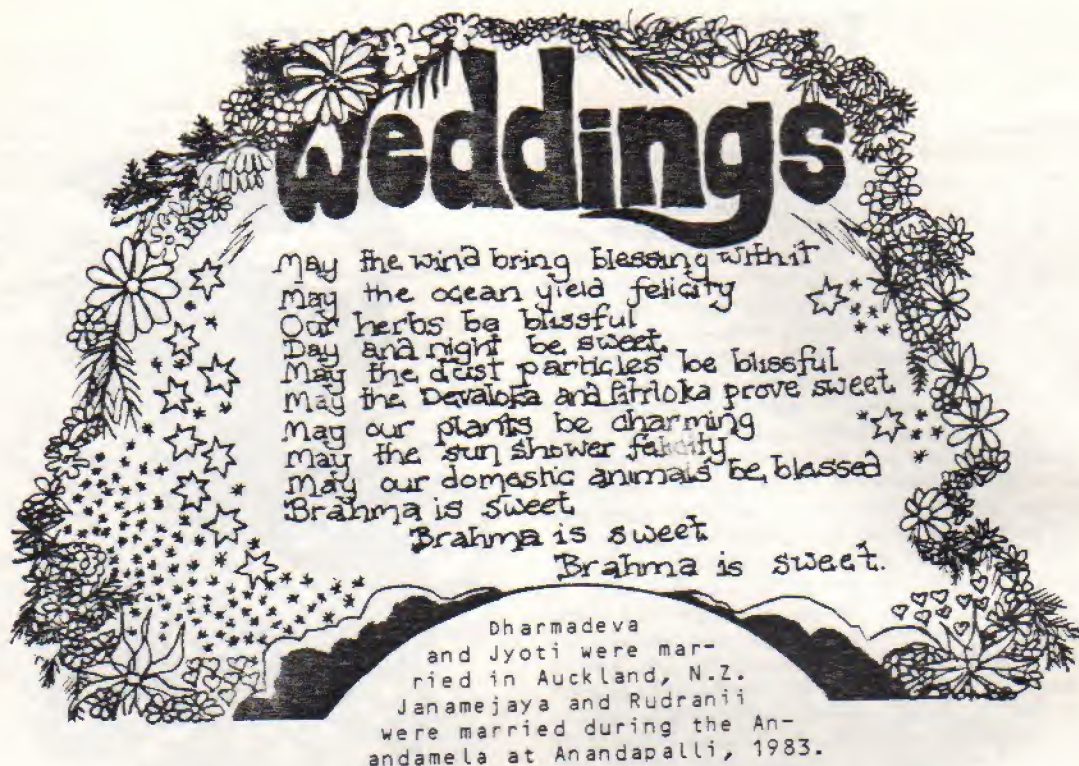 weddings
May the wind bring blessing with it
May the ocean yield felicity
Our herbs be blissful
Day and night be sweet.
May the dust particles be blissful
May the Devaloka and Pitrloka prove sweet
May our plants be charming
May the sun shower felicity
May our domestic animals be blessed
Brahma is sweet
Brahma is sweet
Brahma is sweet.
Dharmadeva
and Jyoti were mar-
ried in Auckland, N.Z.
Janamejaya and Rudranii
were married during the An-
andamela at Anandapalli, 1983.